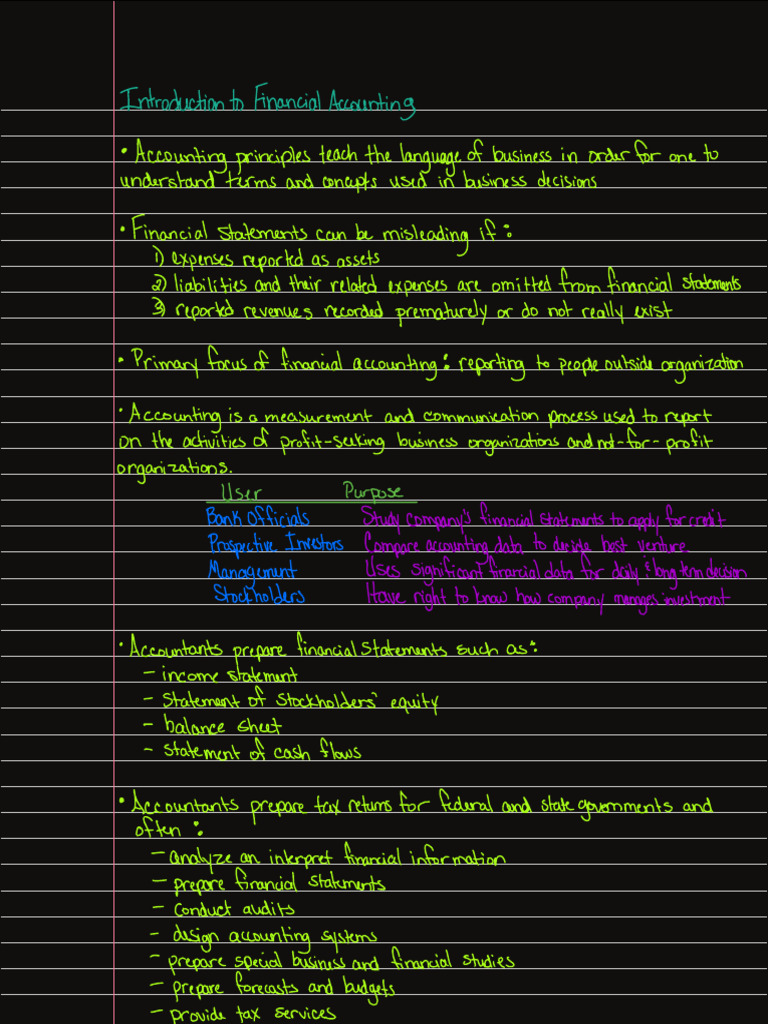 Introduction to Financial Accounting
• Accounting principles teach the language of business in order for one to
understand terms and concepts used in business decisions
• Financial statements can be misleading if:
1) expenses reported as assets
2) liabilities and their related expenses are omitted from financial statements
3) reported revenues recorded prematurely or do not really exist
• Primary focus of financial accounting: reporting to people outside organization
• Accounting is a measurement and communication process used to report
on the activities of profit-seeking business organizations and not-for-profit
organizations.
User Purpose
Bank Officials Study company's financial statements to apply for credit
Prospective Investors Compare accounting data to decide best venture
Management Uses significant financial data for daily & long term decision
Stockholders Have right to know how company manages investment
• Accountants prepare financial statements such as:
- income statement
- statement of stockholders' equity
- balance sheet
- statement of cash flows
• Accountants prepare tax returns for federal and state governments and
often:
- analyze an interpret financial information
- prepare financial statements
- conduct audits
- design accounting systems
- prepare special business and financial studies
- prepare forecasts and budgets
- provide tax services